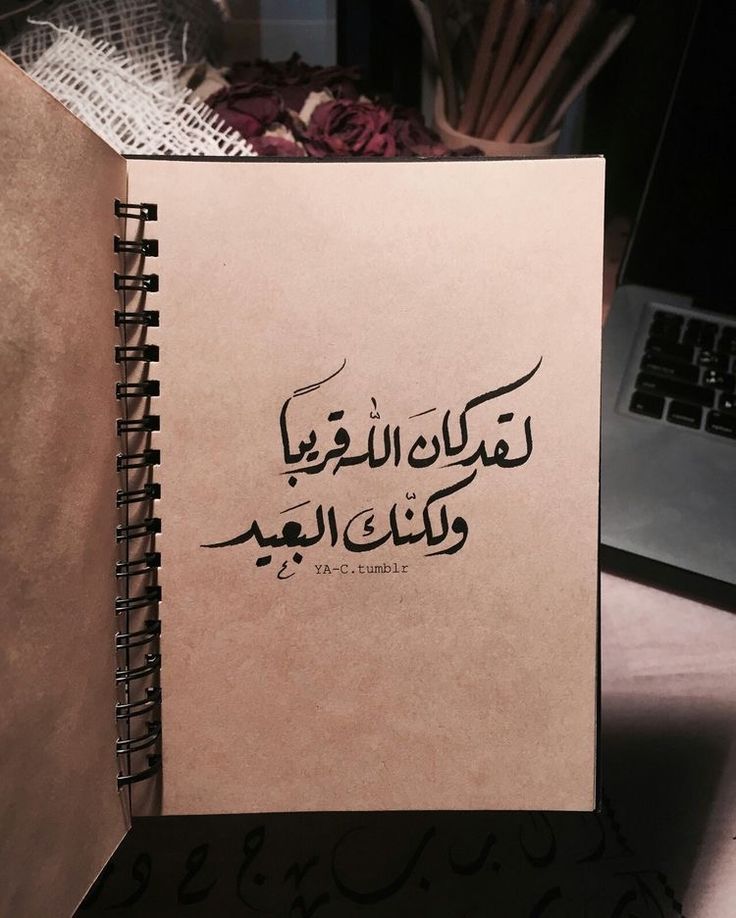 لقد كانَ اللّٰه قريباً
ولكنّك البَعيد
YA-C.tumblr